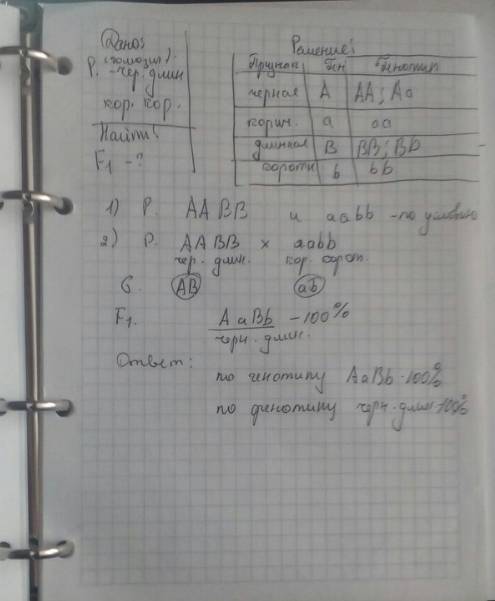 Дано:
(гомозиг.)
P. - чер. длин
кор. кор.
Найти:
F₁ - ?
Решение:
Признак Ген Генотип
черная A AA; Aa
корич. a aa
длинная B BB; Bb
коротк b bb
1) P. AABB и aabb - по условию
2) P. AABB × aabb
чер. длин. кор. корот.
G. AB ab
F₁. AaBb - 100%
черн. длин.
Ответ:
по генотипу AaBb - 100%
по фенотипу черн. длин - 100%